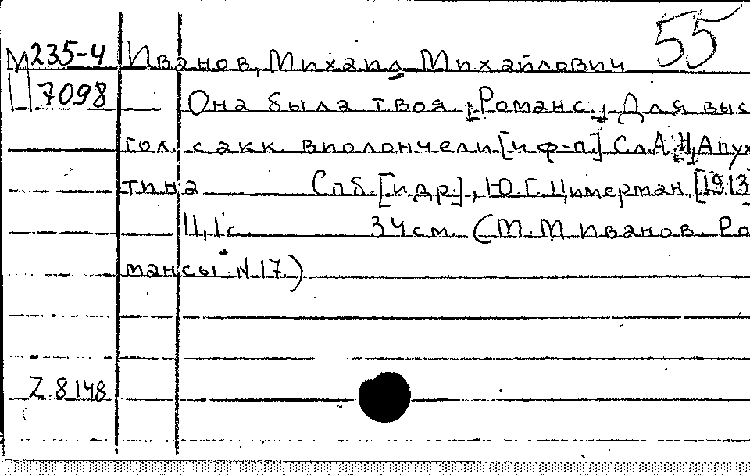 55
М 235-4 Иванов, Михаил Михайлович
7098 Она была твоя; Романс; Для выс
гол. с акк. виолончели [и ф-п.] Сл. А. Н. Апух
тина Спб. [и др.], Ю. Г. Цимерман, [1913]
11, 1 с. 34 см. (М. М. Иванов. Ро
мансы N 17.)
Z. 8148